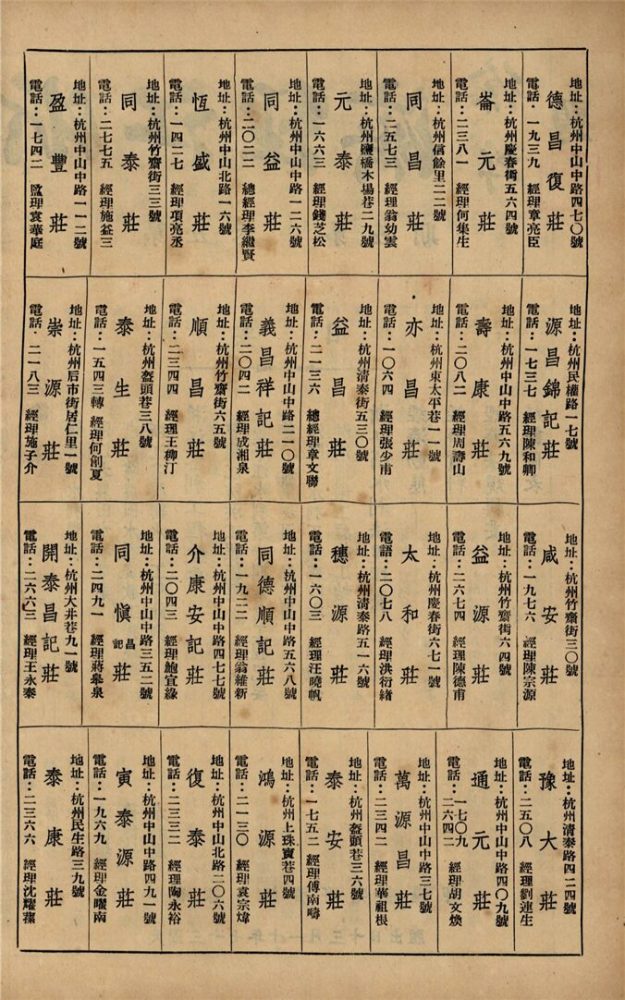 地址：杭州中山中路四七〇號
德昌復莊
電話：一九三九　經理章亮臣
地址：杭州慶春街五六四號
崙元莊
電話：二三八一　經理何集生
地址：杭州信餘里二二號
同昌莊
電話：二五七三　經理翁幼雲
地址：杭州鹽橋木場巷二九號
元泰莊
電話：一六六三　經理錢芝松
地址：杭州中山中路一二六號
同益莊
電話：二〇二二　總經理李繼賢
地址：杭州中山北路一六號
恆盛莊
電話：一四二七　經理項亮丞
地址：杭州竹齋街三三號
同泰莊
電話：二七七五　經理施益三
地址：杭州中山中路一一二號
盈豐莊
電話：一七四二　監理袁華庭
地址：杭州民權路一七號
源昌錦記莊
電話：一七三七　經理陳和卿
地址：杭州中山中路五六九號
壽康莊
電話：二〇八二　經理周壽山
地址：杭州東太平巷一一號
亦昌莊
電話：一〇六四　經理張少甫
地址：杭州清泰街五三〇號
益昌莊
電話：二一三六　總經理章文聯
地址：杭州中山中路二一〇號
義昌祥記莊
電話：二〇四二　經理成湘泉
地址：杭州竹齋街六五號
順昌莊
電話：二三四四　經理王柳汀
地址：杭州盔頭巷三八號
泰生莊
電話：一五四三轉　經理何創夏
地址：杭州后市街居仁里一號
崇源莊
電話：二一八三　經理施子介
地址：杭州竹齋街三〇號
咸安莊
電話：一九七六　經理陳宗源
地址：杭州竹齋街六四號
益源莊
電話：二六七四　經理陳德甫
地址：杭州慶春街六七一號
太和莊
電話：二〇七八　經理洪衍緒
地址：杭州清泰路五一六號
穗源莊
電話：一六〇三　經理汪曉帆
地址：杭州中山中路五六八號
同德順記莊
電話：一九二二　經理翁維新
地址：杭州中山中路四七七號
介康安記莊
電話：二〇四三　經理鮑宜緣
地址：杭州中山中路三五二號
同愼昌記莊
電話：二四九一　經理蔣皋泉
地址：杭州大井巷九一號
開泰昌記莊
電話：二六六三　經理王永泰
地址：杭州清泰路四二四號
豫大莊
電話：二五〇八　經理劉連生
地址：杭州中山中路四〇九號
通元莊
電話：一七〇九　二六四二　經理胡文煥
地址：杭州中山中路三七號
萬源昌莊
電話：二三四二　經理華祖根
地址：杭州盔頭巷三六號
泰安莊
電話：一七五二　經理傅南疇
地址：杭州上珠寶巷四號
鴻源莊
電話：二一三〇　經理袁宗煒
地址：杭州中山北路二〇六號
復泰莊
電話：二三三二　經理陶永裕
地址：杭州中山中路四九一號
寅泰源莊
電話：一九六九　經理金曜南
地址：杭州民生路三九號
泰康莊
電話：二三六六　經理沈燿